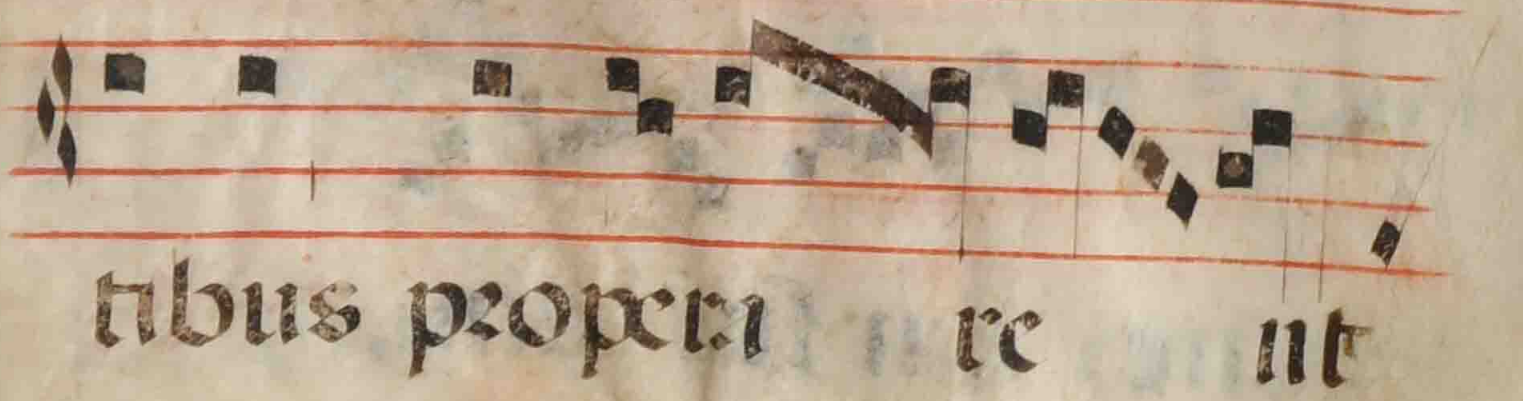 tibus propera re ut